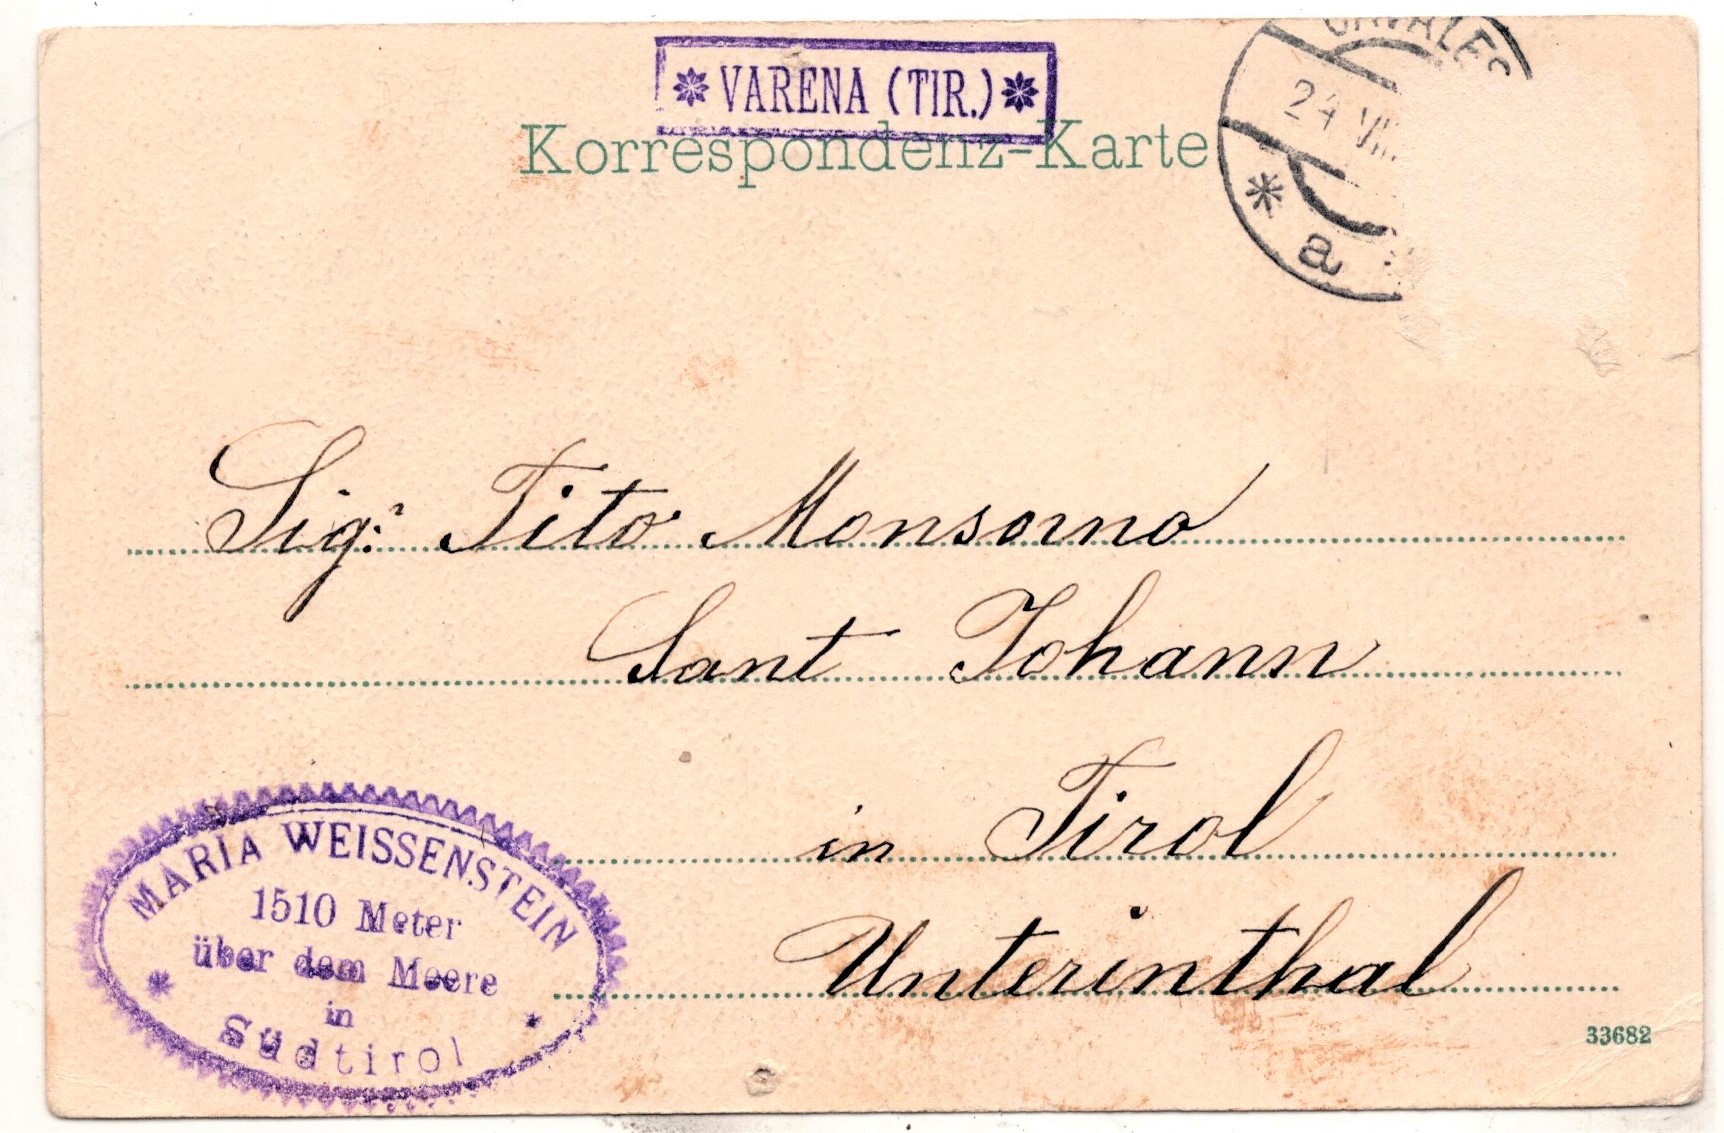 * VARENA (TIR.) *
Korrespondenz-Karte
CAVALES
24 VIII
* a
Sig.r Tito Monsorno
Sant Johann
in Tirol
Unterinthal
MARIA WEISSENSTEIN
1510 Meter
über dem Meere
in
Südtirol
33682